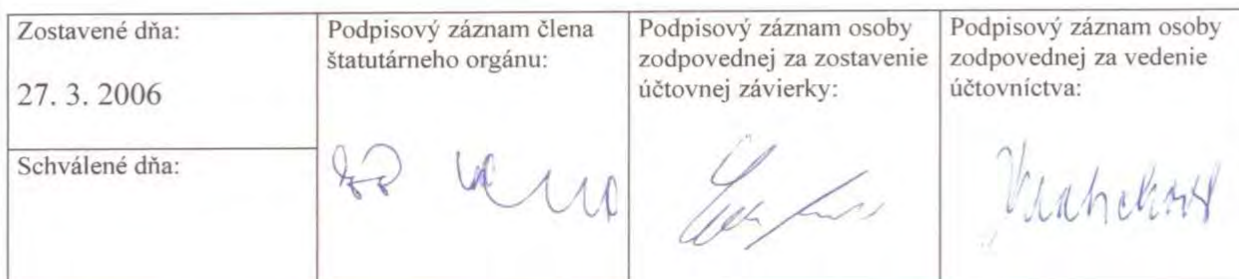 Zostavené dňa:
27. 3. 2006
Schválené dňa:
Podpisový záznam člena
štatutárneho orgánu:
Podpisový záznam osoby
zodpovednej za zostavenie
účtovnej závierky:
Podpisový záznam osoby
zodpovednej za vedenie
účtovníctva: